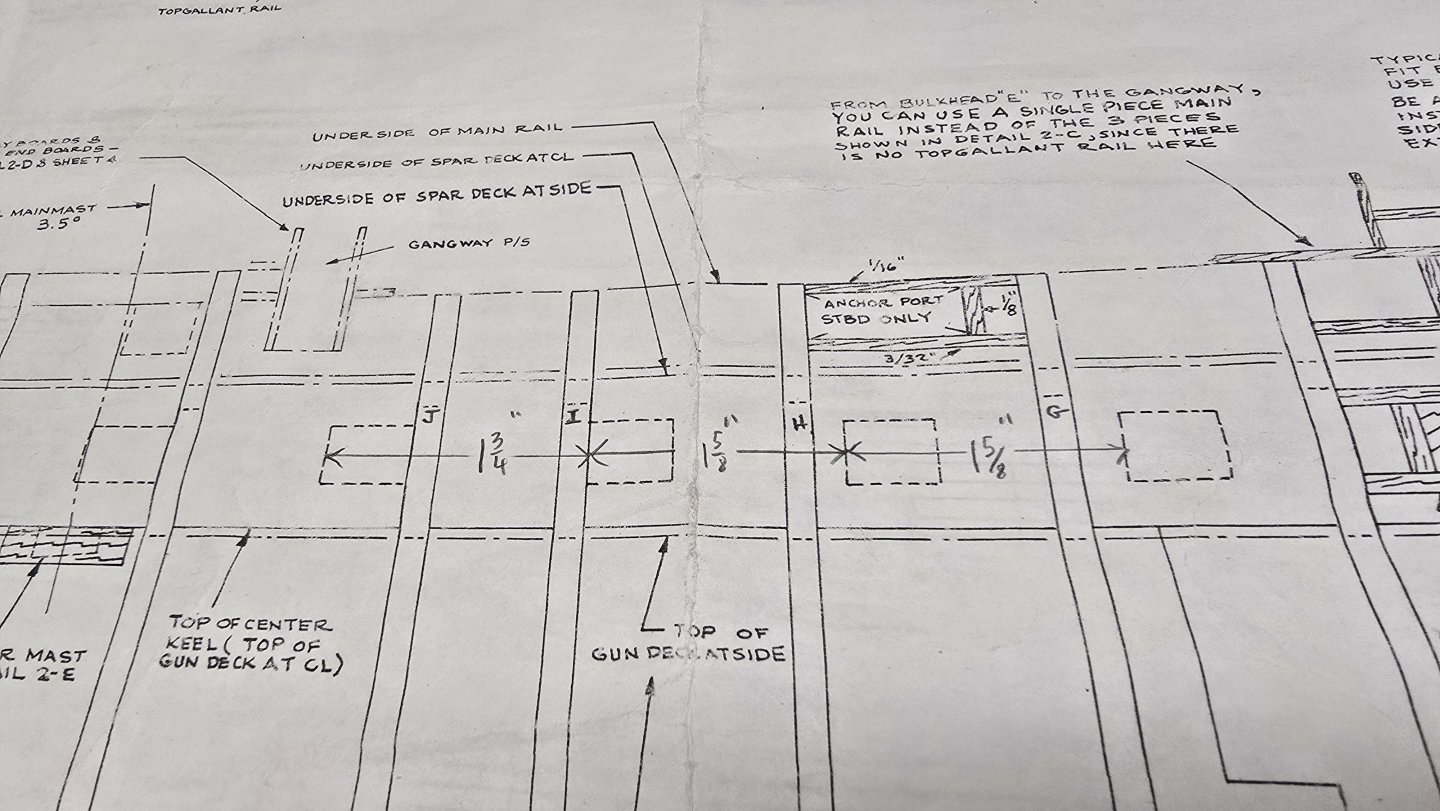 TOPGALLANT RAIL
BOARDS &
END BOARDS –
2-D & SHEET 4
MAINMAST
3.5°
UNDERSIDE OF MAIN RAIL
UNDERSIDE OF SPAR DECK AT CL
UNDERSIDE OF SPAR DECK AT SIDE
GANGWAY P/S
FROM BULKHEAD "E" TO THE GANGWAY,
YOU CAN USE A SINGLE PIECE MAIN
RAIL INSTEAD OF THE 3 PIECES
SHOWN IN DETAIL 2-C, SINCE THERE
IS NO TOPGALLANT RAIL HERE
FIT
USE
BE
1/16"
ANCHOR PORT
STBD ONLY
1/8"
3/32"
J
I
H
G
1 3/4"
1 5/8"
1 5/8"
TOP OF CENTER
KEEL ( TOP OF
GUN DECK AT CL)
MAST
2-E
TOP OF
GUN DECK AT SIDE